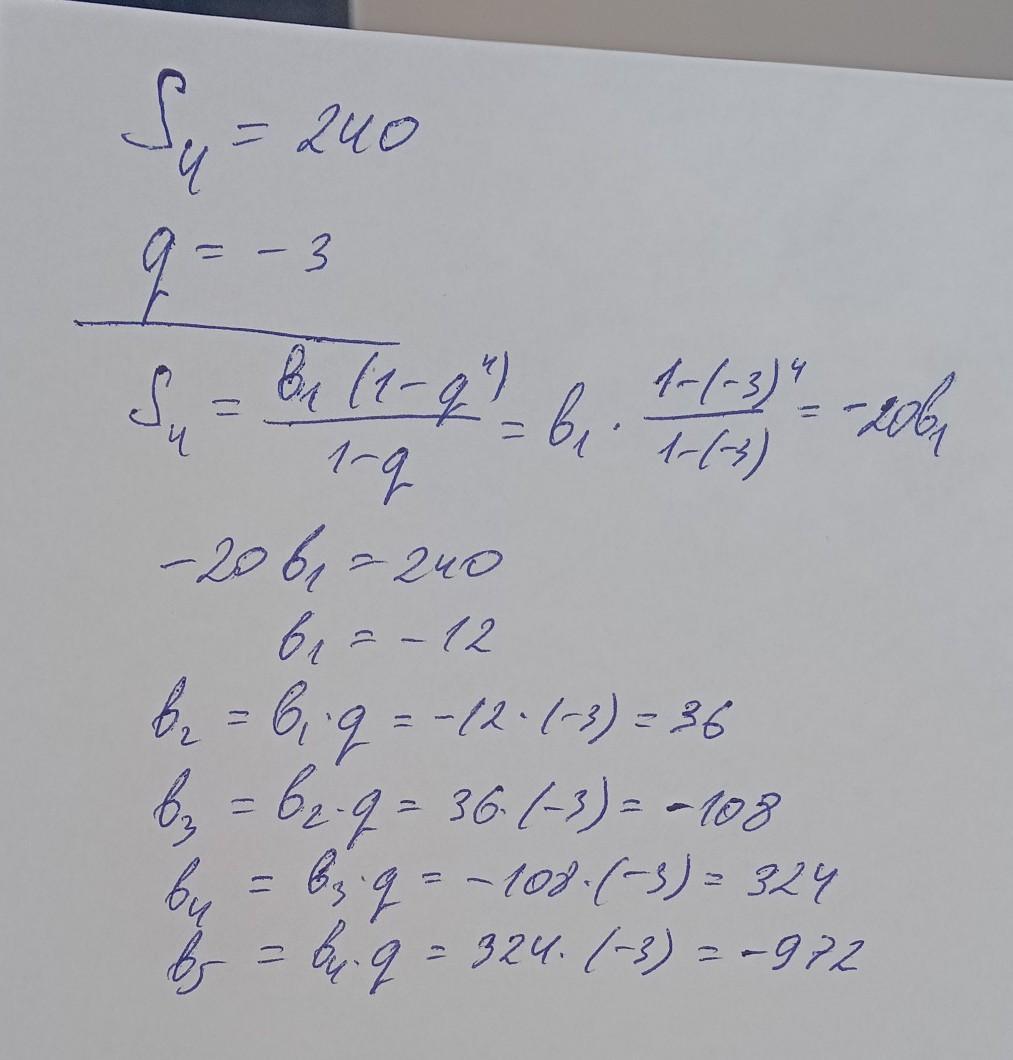 S₄ = 240
q = -3
S₄ = b₁(1-q⁴)/(1-q) = b₁ · (1-(-3)⁴)/(1-(-3)) = -20b₁
-20 b₁ = 240
b₁ = -12
b₂ = b₁ · q = -12 · (-3) = 36
b₃ = b₂ · q = 36 · (-3) = -108
b₄ = b₃ · q = -108 · (-3) = 324
b₅ = b₄ · q = 324 · (-3) = -972